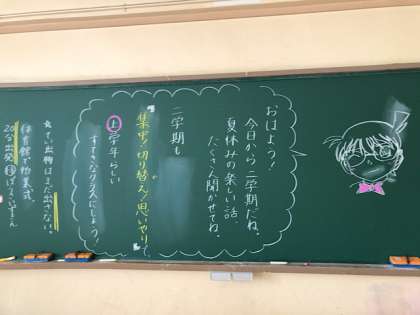 おはよう!
今日から二学期だね。
夏休みの楽しい話
たくさん聞かせてね。
二学期も
集中!切り替え!思いやりで、
上学年らしい
すてきなクラスにしよう!
出さない。
体育館で始業式。
20分出発